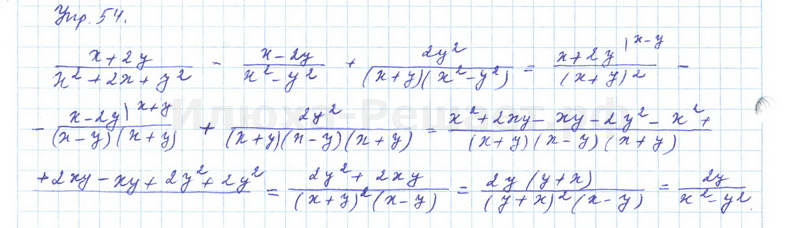 Упр. 54.
(x+2y)/(x²+2x+y²) - (x-2y)/(x²-y²) + 2y²/((x+y)(x²-y²)) = (x+2y |x-y)/(x+y)² -
- (x-2y |x+y)/((x-y)(x+y)) + 2y²/((x+y)(x-y)(x+y)) = (x²+2xy-xy-2y²-x²+)/((x+y)(x-y)(x+y))
(+2xy-xy+2y²+2y²) = (2y²+2xy)/((x+y)²(x-y)) = 2y(y+x)/((y+x)²(x-y)) = 2y/(x²-y²)